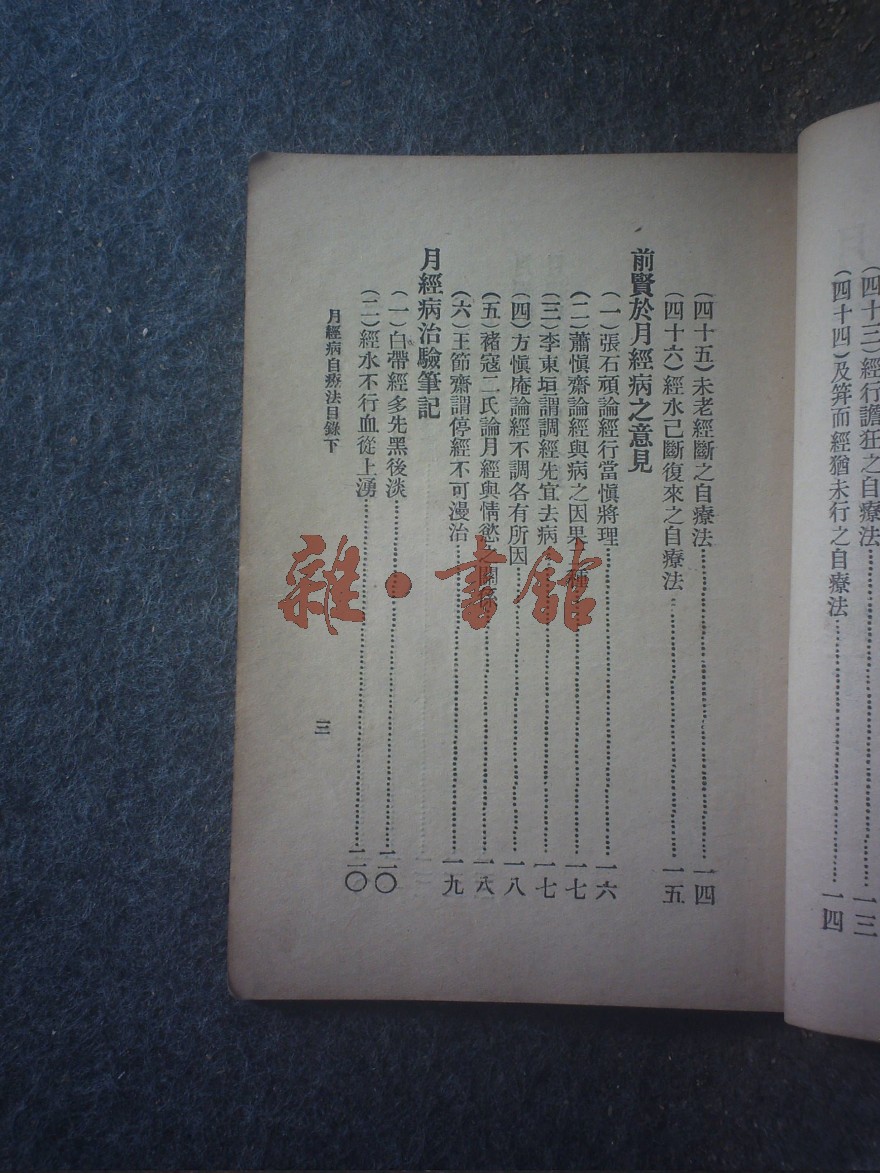 (四十三)經行譫狂之自療法……一三
(四十四)及笄而經猶未行之自療法……一四
(四十五)未老經斷之自療法……一四
(四十六)經水已斷復來之自療法……一五
前賢於月經病之意見
(一)張石頑論經行當愼將理……一六
(二)蕭愼齋論經與病之因果種……一七
(三)李東垣謂調經先宜去病……一七
(四)方愼庵論經不調各有所因……一八
(五)褚寇二氏論月經與情慾之關係……一八
(六)王節齋謂停經不可漫治……一九
月經病治驗筆記
(一)白帶經多先黑後淡……二〇
(二)經水不行血從上湧……二〇
月經病自療法目錄下
三
雜·書館